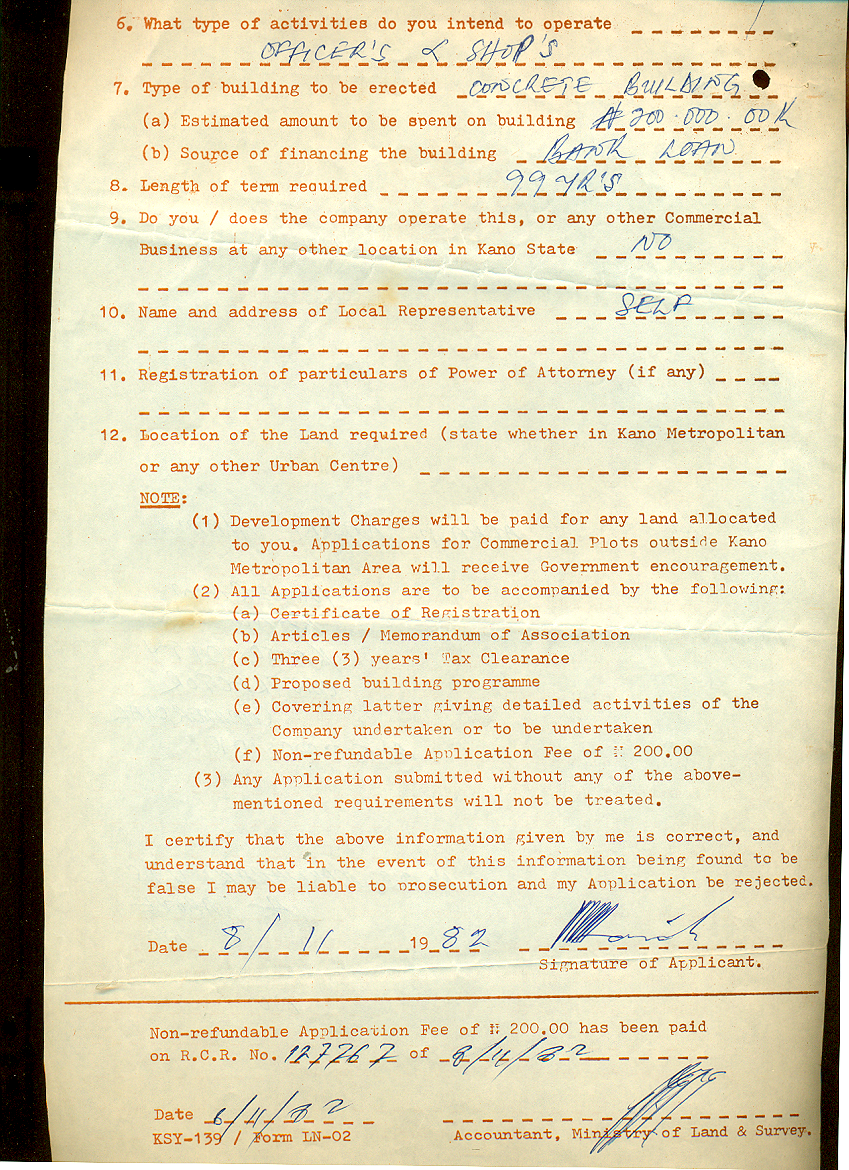 6. What type of activities do you intend to operate
OFFICER'S & SHOP'S
7. Type of building to be erected CONCRETE BUILDING
(a) Estimated amount to be spent on building ₦200.000.00K
(b) Source of financing the building BANK LOAN
8. Length of term required 99 YR'S
9. Do you / does the company operate this, or any other Commercial
Business at any other location in Kano State NO
10. Name and address of Local Representative SELF
11. Registration of particulars of Power of Attorney (if any)
12. Location of the Land required (state whether in Kano Metropolitan
or any other Urban Centre)
NOTE:
(1) Development Charges will be paid for any land allocated
to you. Applications for Commercial Plots outside Kano
Metropolitan Area will receive Government encouragement.
(2) All Applications are to be accompanied by the following:
(a) Certificate of Registration
(b) Articles / Memorandum of Association
(c) Three (3) years' Tax Clearance
(d) Proposed building programme
(e) Covering latter giving detailed activities of the
Company undertaken or to be undertaken
(f) Non-refundable Application Fee of ₦ 200.00
(3) Any Application submitted without any of the above-
mentioned requirements will not be treated.
I certify that the above information given by me is correct, and
understand that in the event of this information being found to be
false I may be liable to prosecution and my Application be rejected.
Date 8/11 1982
Signature of Applicant.
Non-refundable Application Fee of ₦ 200.00 has been paid
on R.C.R. No. 127767 of
Date
KSY-139 / Form LN-02 Accountant, Ministry of Land & Survey.